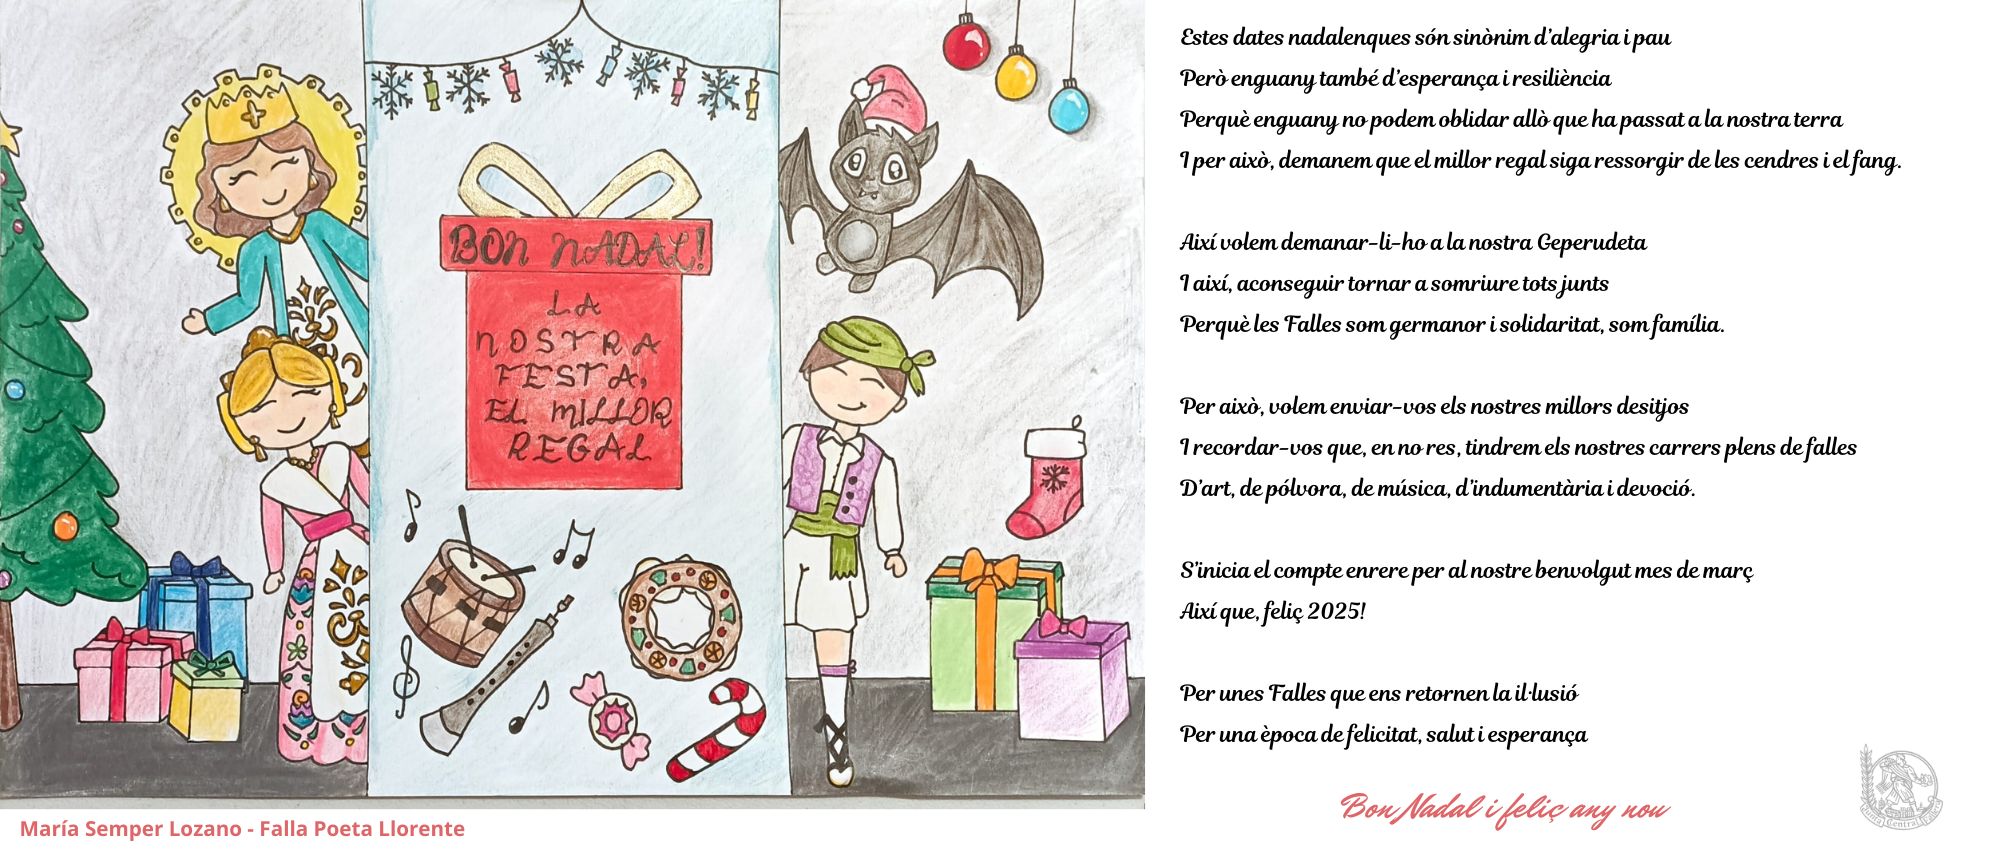 BON NADAL!
LA
NOSTRA
FESTA,
EL MILLOR
REGAL
María Semper Lozano - Falla Poeta Llorente
Estes dates nadalenques són sinònim d'alegria i pau
Però enguany també d'esperança i resiliència
Perquè enguany no podem oblidar allò que ha passat a la nostra terra
I per això, demanem que el millor regal siga ressorgir de les cendres i el fang.
Així volem demanar-li-ho a la nostra Geperudeta
I així, aconseguir tornar a somriure tots junts
Perquè les Falles som germanor i solidaritat, som família.
Per això, volem enviar-vos els nostres millors desitjos
I recordar-vos que, en no res, tindrem els nostres carrers plens de falles
D'art, de pólvora, de música, d'indumentària i devoció.
S'inicia el compte enrere per al nostre benvolgut mes de març
Així que, feliç 2025!
Per unes Falles que ens retornen la il·lusió
Per una època de felicitat, salut i esperança
Bon Nadal i feliç any nou
Junta Central Fallera